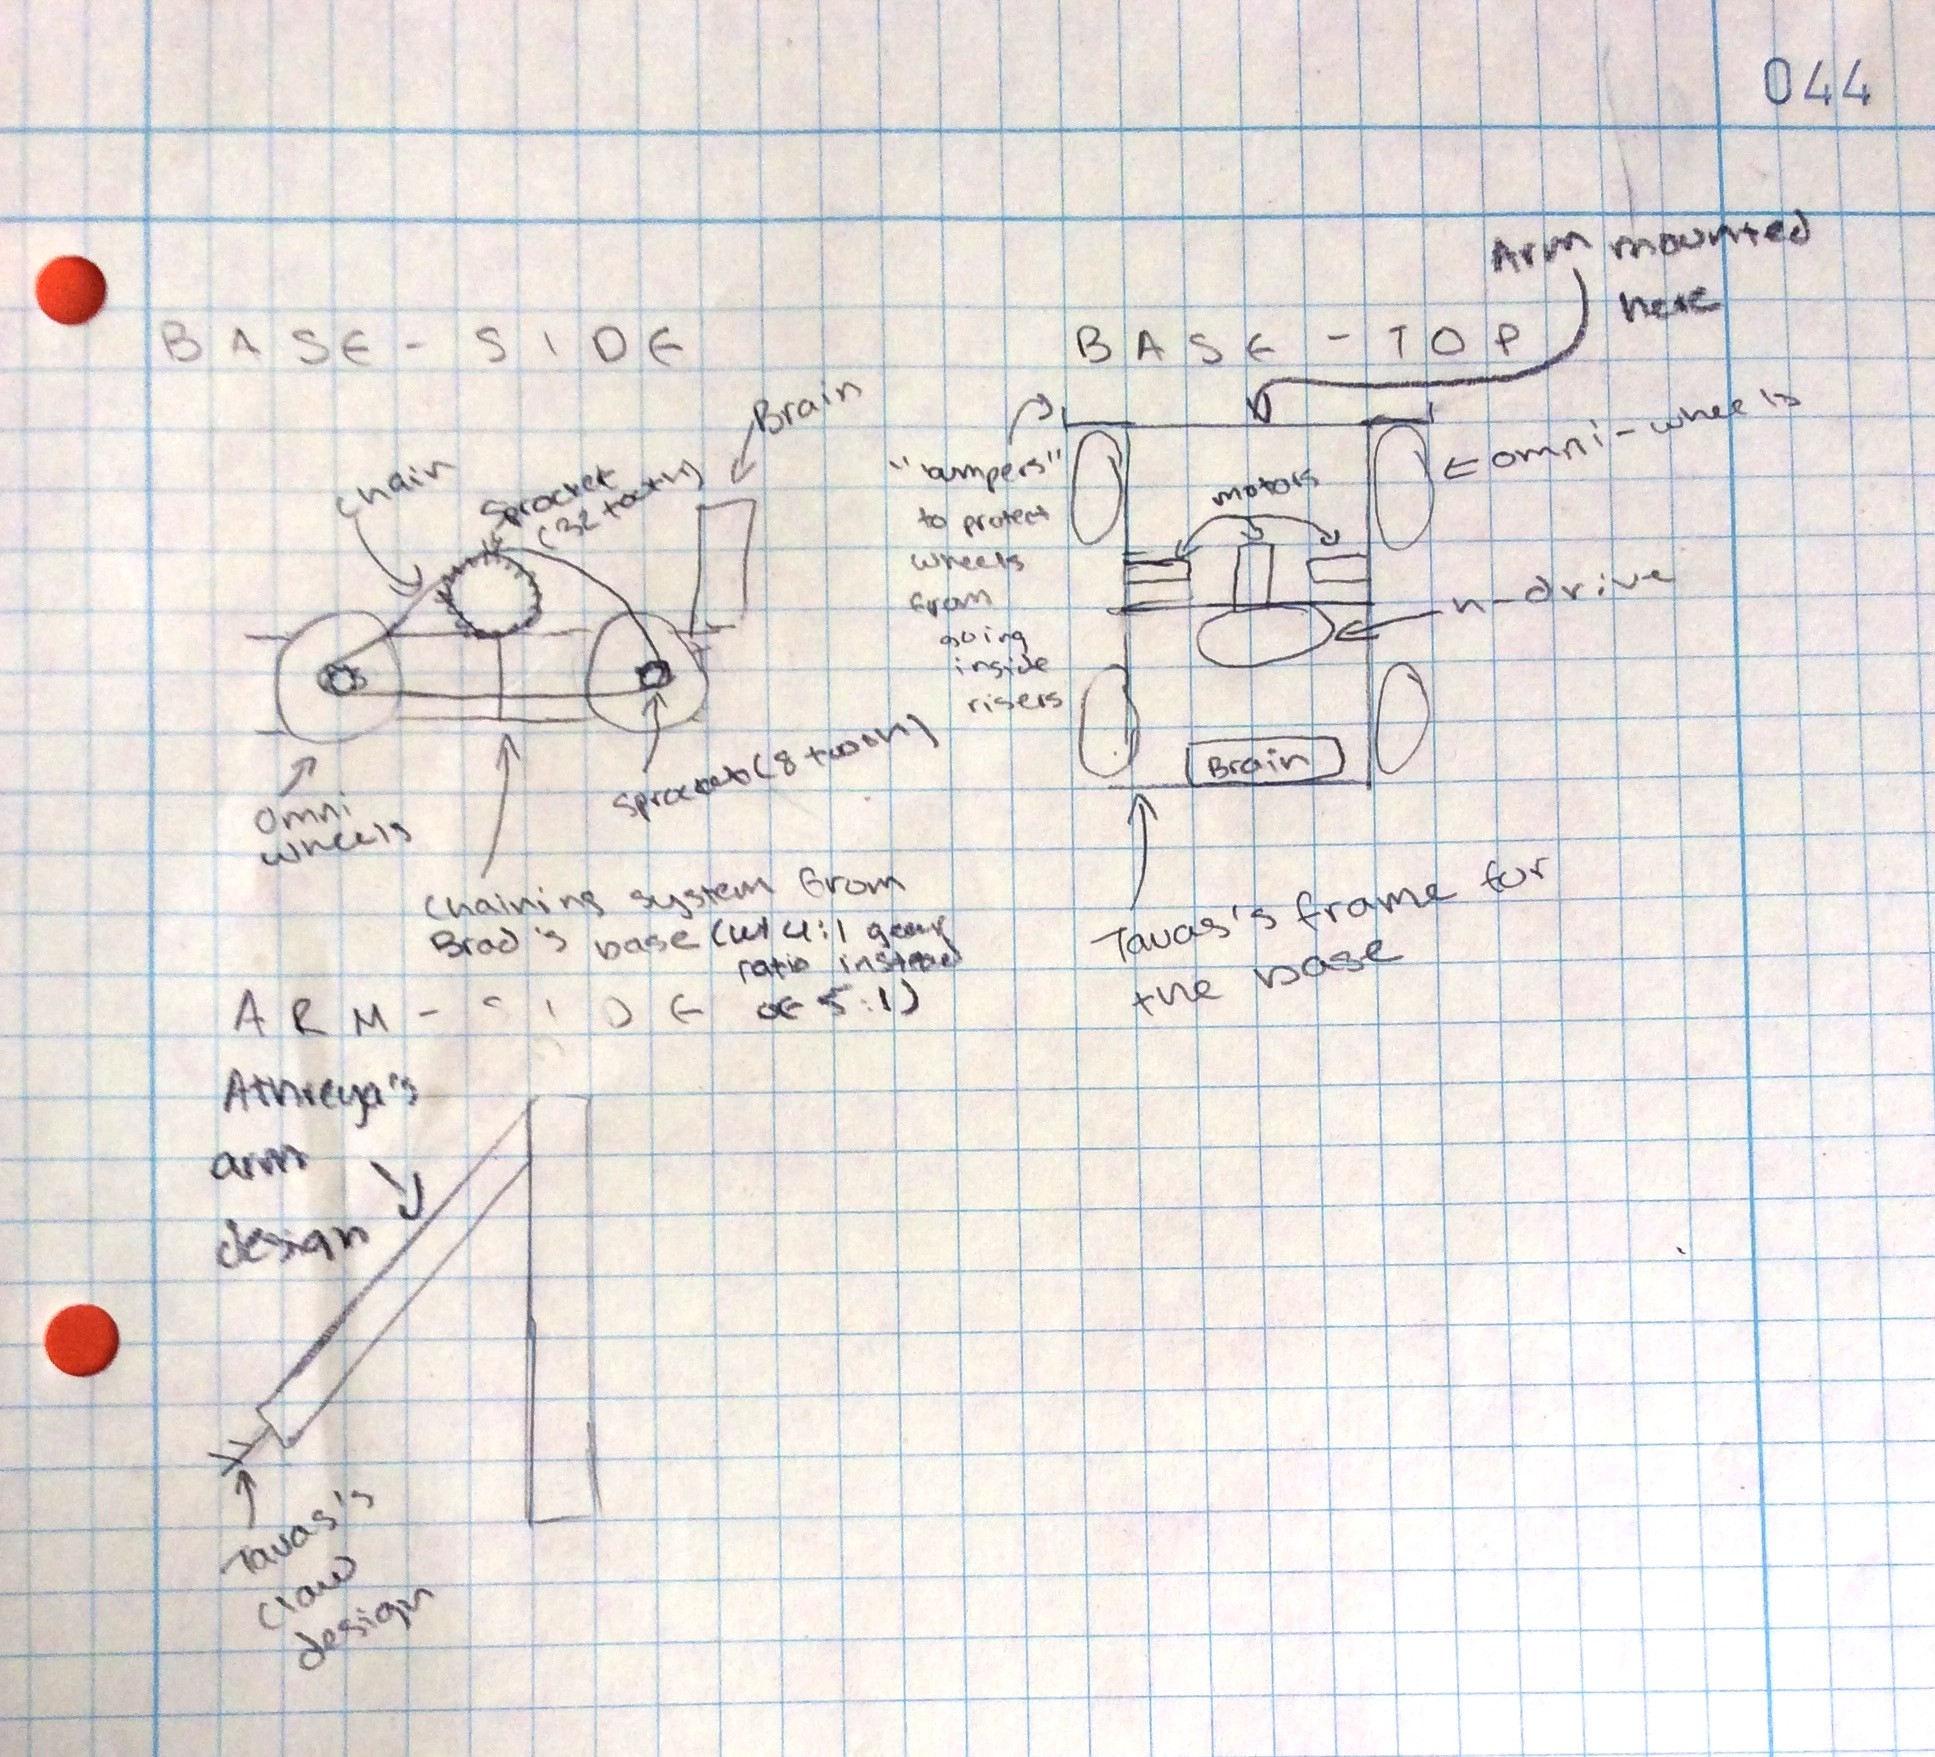 044
BASE - SIDE
Brain
chain
sprocket
(32 tooth)
omni
wheels
sprocket (8 tooth)
chaining system from
Brad's base (w/ 4:1 gear
ratio instead
of 5:1)
BASE - TOP
Arm mounted
here
"bumpers"
to protect
wheels
from
going
inside
risers
motors
omni-wheels
n-drive
Brain
Tavas's frame for
the base
ARM - SIDE
Athreya's
arm
design
Tavas's
claw
design